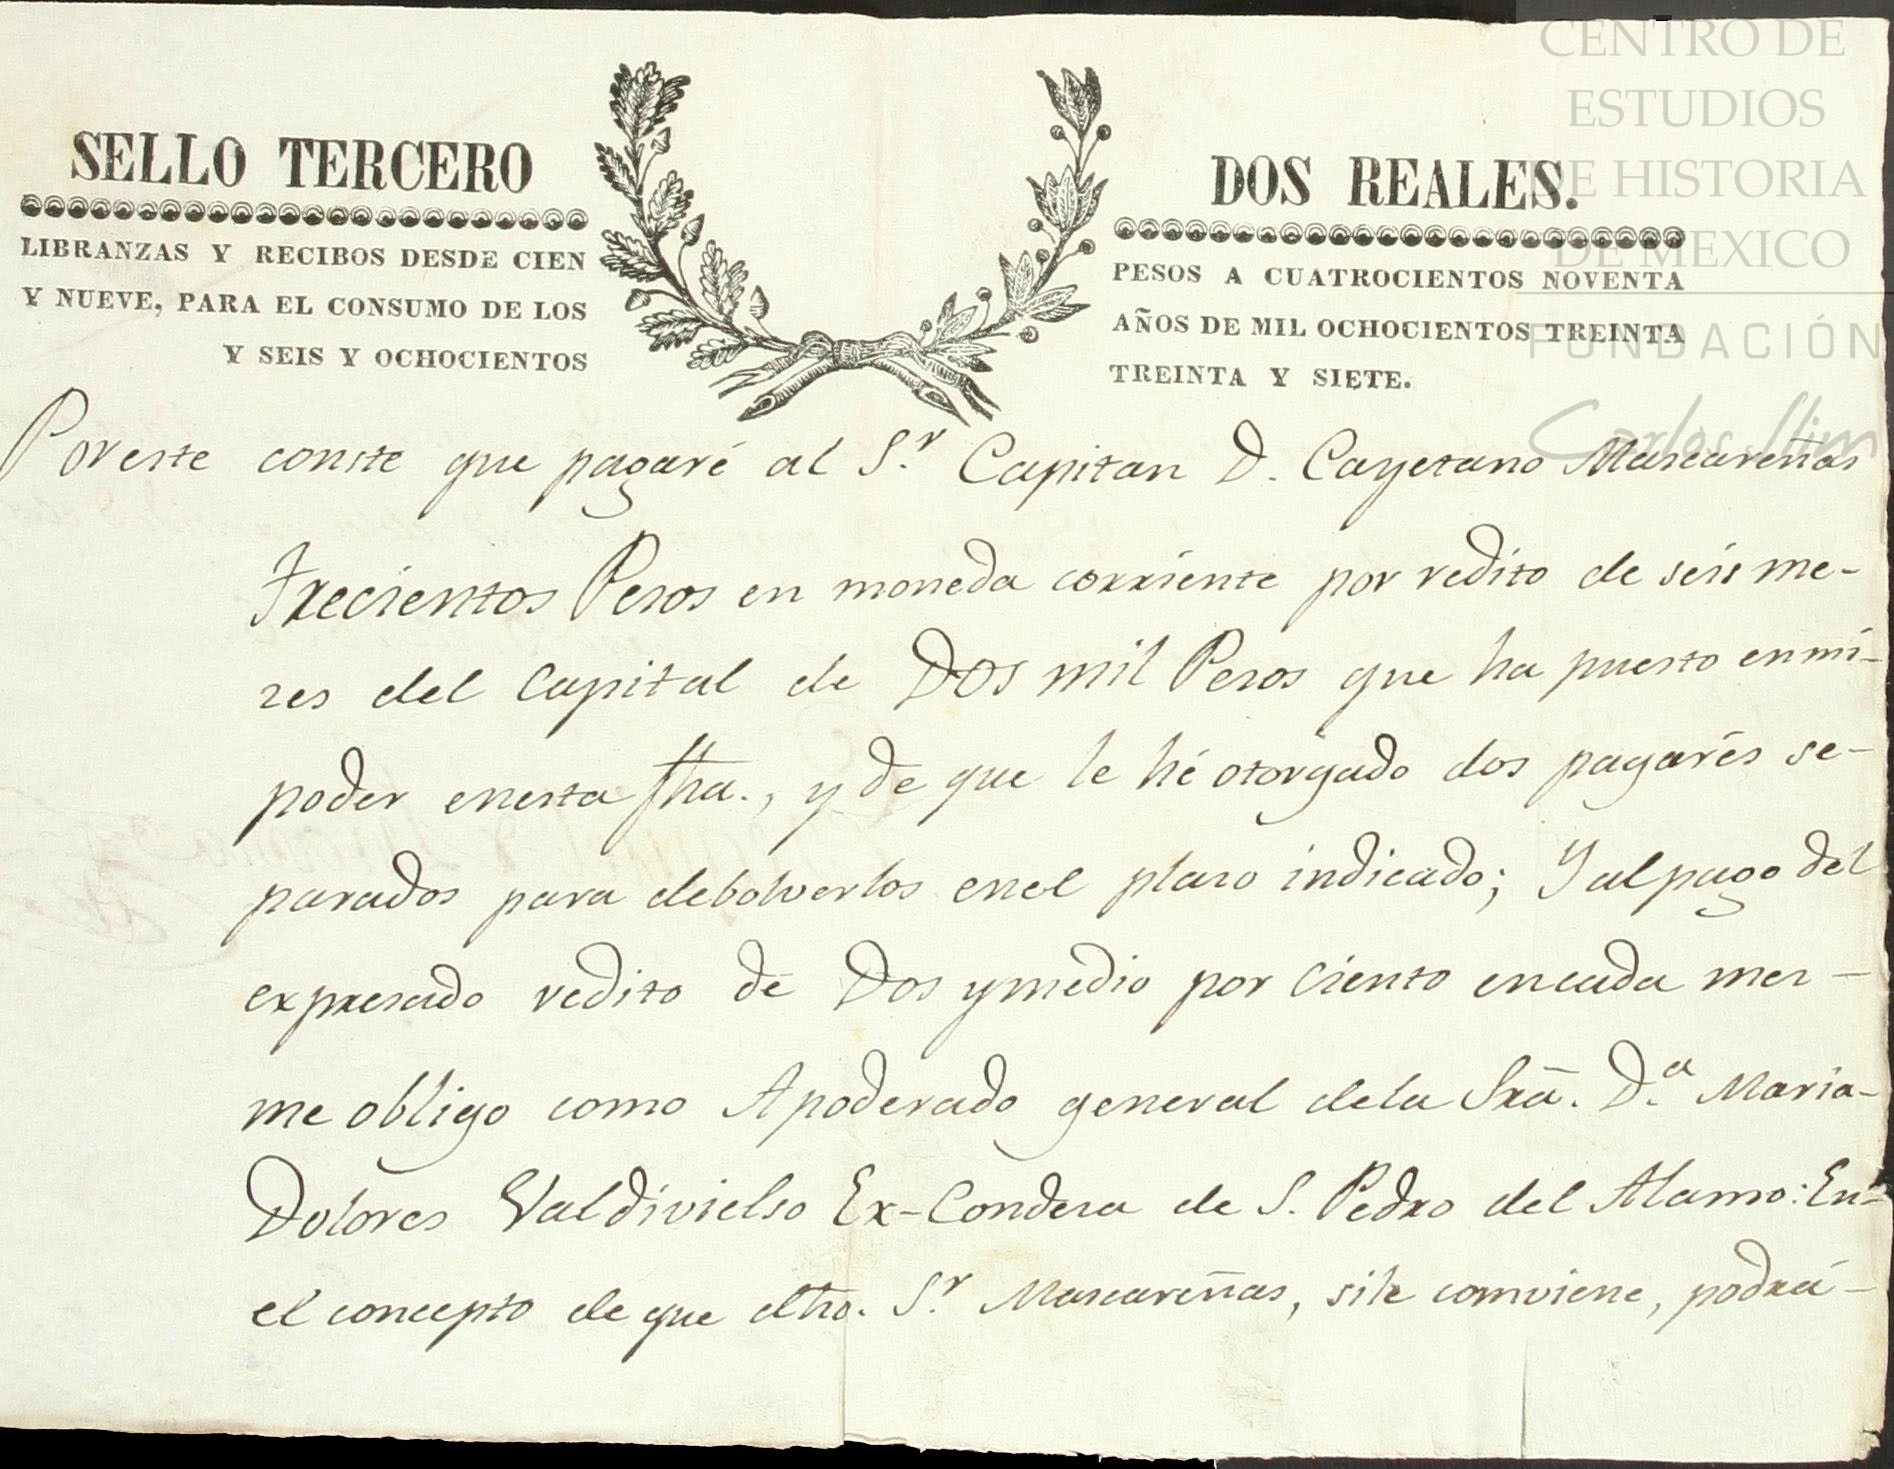 CENTRO DE
ESTUDIOS
DE HISTORIA
DE MEXICO
FUNDACIÓN
Carlos Slim
SELLO TERCERO
DOS REALES.
LIBRANZAS Y RECIBOS DESDE CIEN
PESOS A CUATROCIENTOS NOVENTA
Y NUEVE, PARA EL CONSUMO DE LOS
AÑOS DE MIL OCHOCIENTOS TREINTA
Y SEIS Y OCHOCIENTOS
TREINTA Y SIETE.
Por este conste que pagaré al S.r Capitan D. Cayetano Mascareñas
Trecientos Pesos en moneda corriente por redito de seis me-
ses del Capital de Dos mil Pesos que ha puesto en mi-
poder en esta fha., y de que le hé otorgado dos pagarés se-
parados para debolverlos en el plazo indicado; Y al pago del
expresado redito de Dos y medio por ciento en cada mes-
me obligo como Apoderado general de la Srã. D.a Maria-
Dolores Valdivielso Ex-Condesa de S. Pedro del Alamo: En-
el concepto de que dho. S.r Mascareñas, si le comviene, podrá-